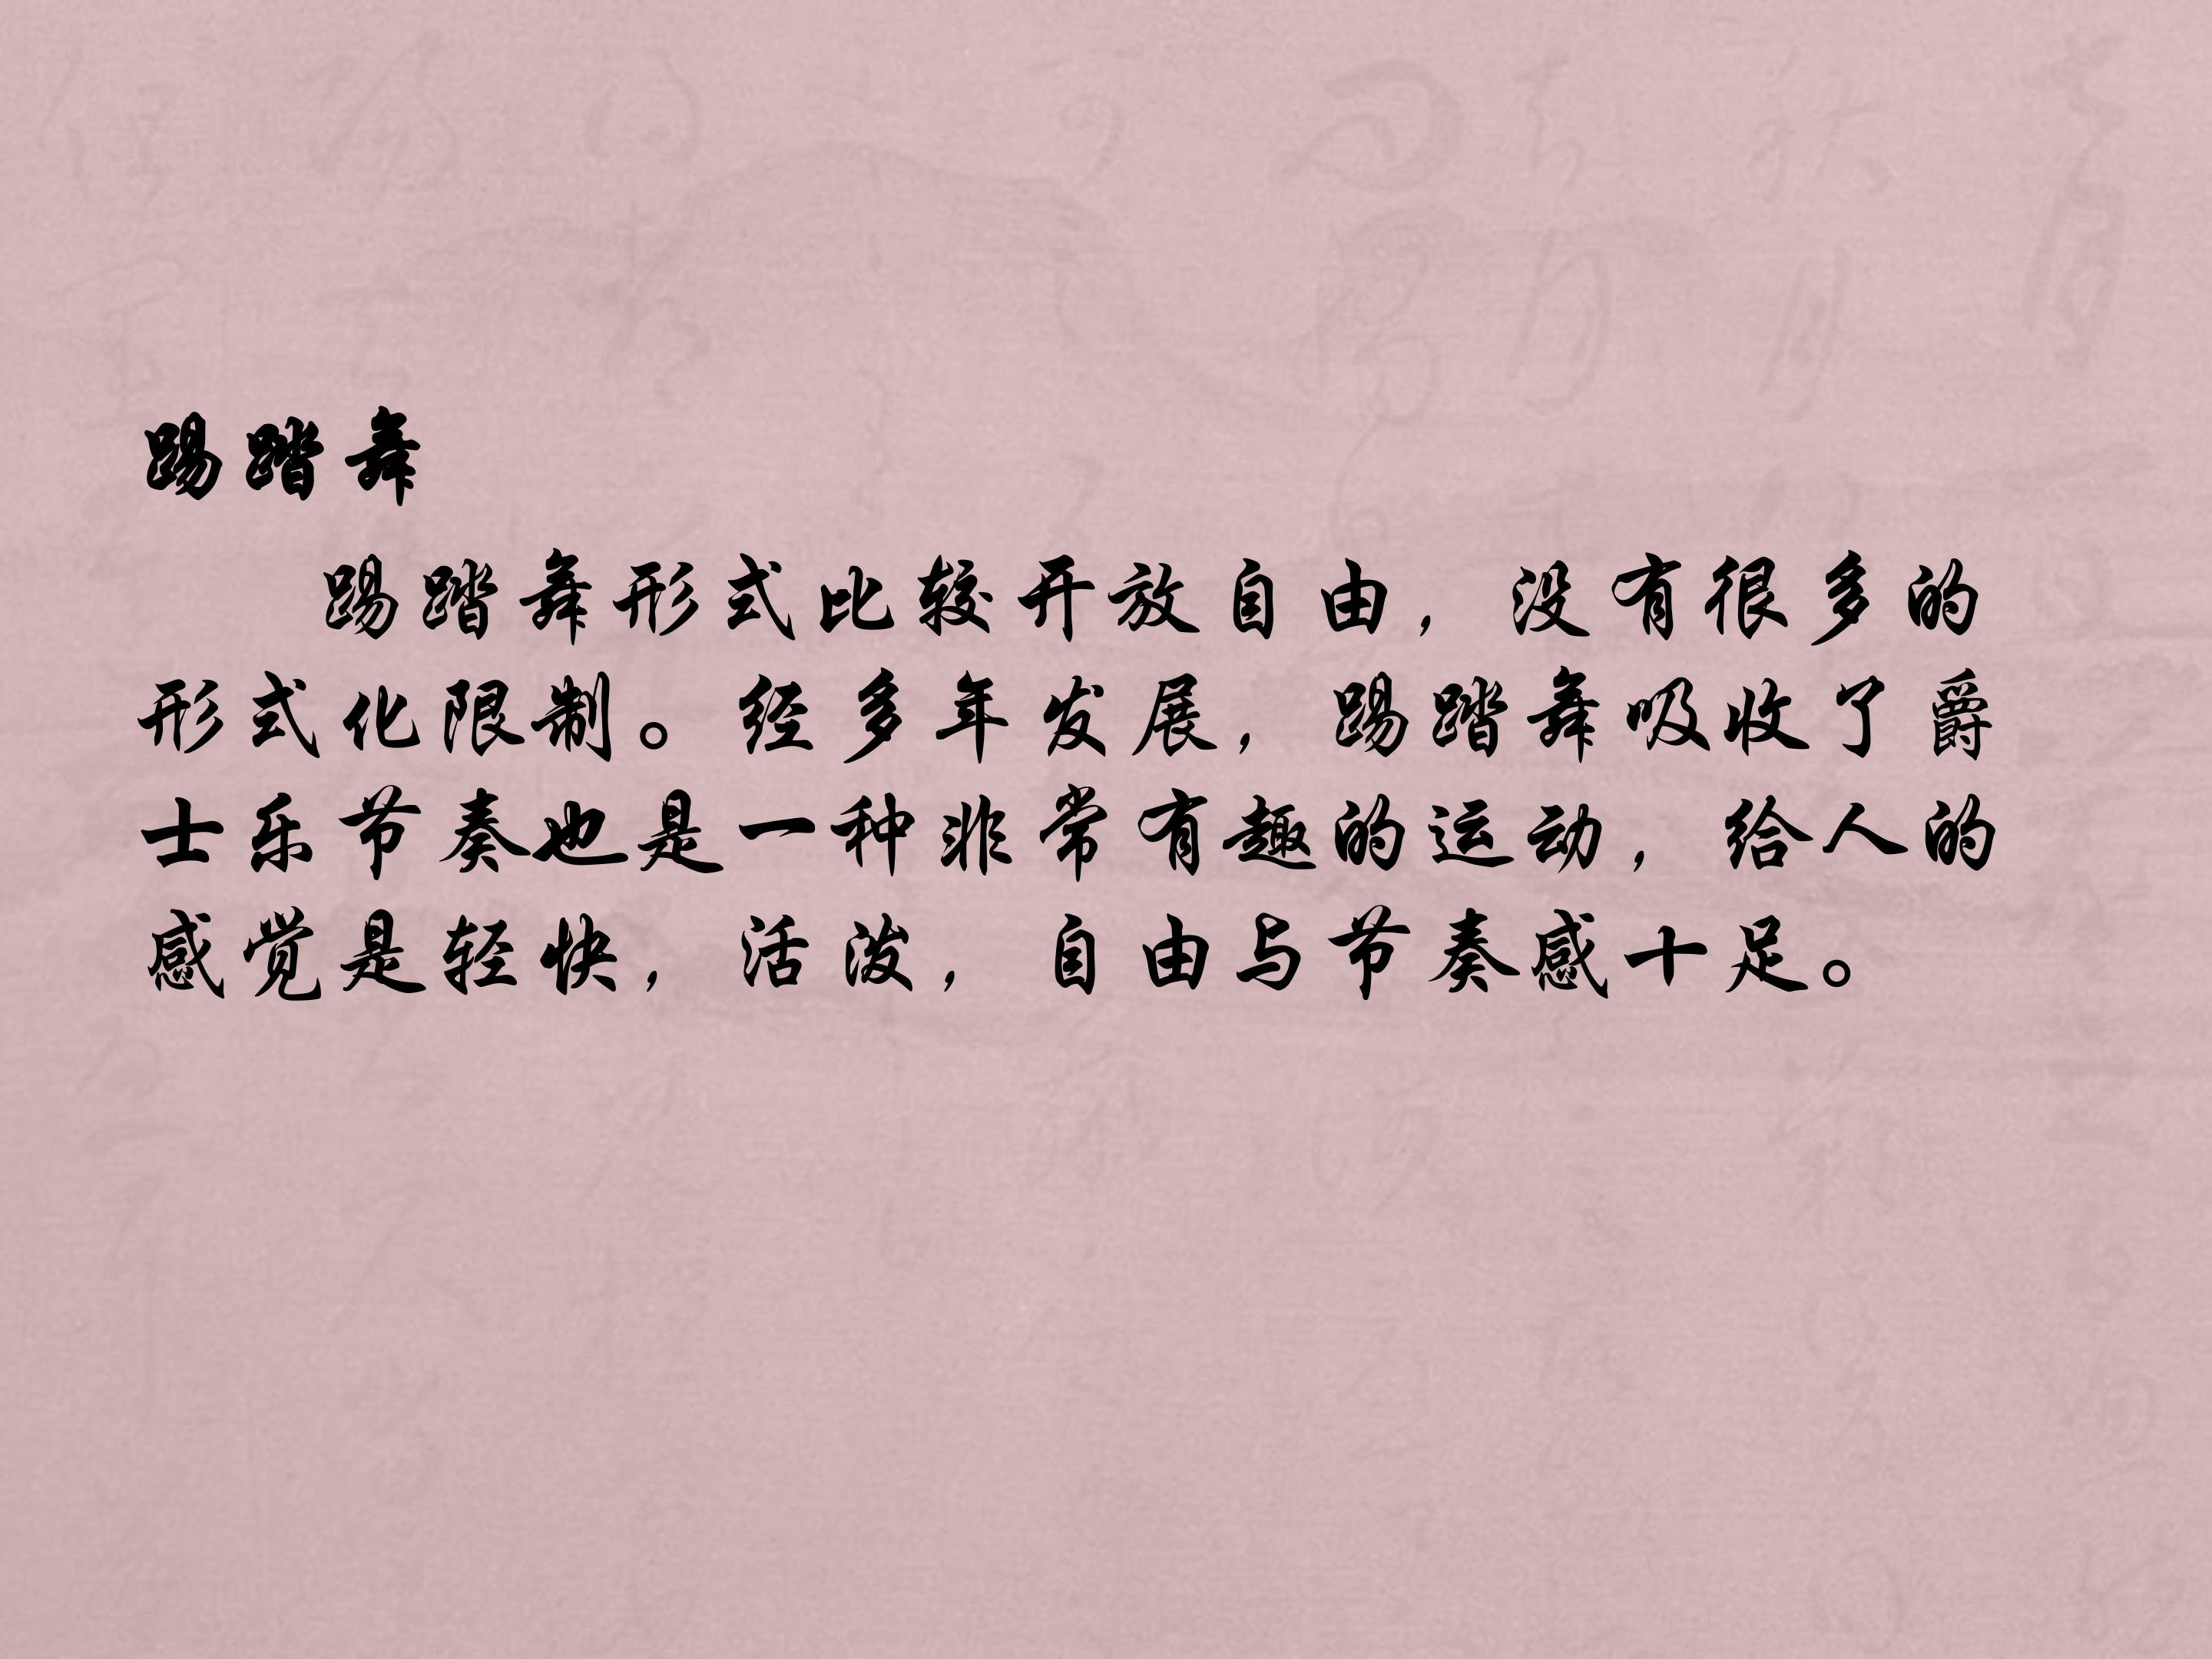 踢踏舞
踢踏舞形式比较开放自由，没有很多的
形式化限制。经多年发展，踢踏舞吸收了爵
士乐节奏也是一种非常有趣的运动，给人的
感觉是轻快，活泼，自由与节奏感十足。